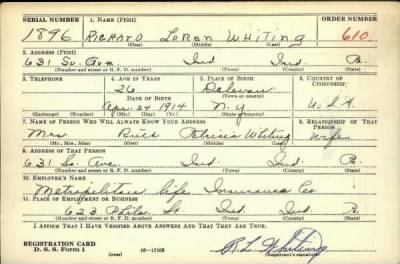 SERIAL NUMBER 1. NAME (Print) ORDER NUMBER
1896 RICHARD LOREN WHITING 610
(First) (Middle) (Last)
2. ADDRESS (Print)
631 So. Ave. Ind Ind Pa.
(Number and street or R. F. D. number) (Town) (County) (State)
3. TELEPHONE 4. AGE IN YEARS 5. PLACE OF BIRTH 6. COUNTRY OF CITIZENSHIP
26 Delevan
DATE OF BIRTH (Town or county)
Apr. 24 1914 N.Y. U.S.A.
(Exchange) (Number) (Mo.) (Day) (Yr.) (State or country)
7. NAME OF PERSON WHO WILL ALWAYS KNOW YOUR ADDRESS 8. RELATIONSHIP OF THAT PERSON
Mrs Patricia Whiting Wife
(Mr., Mrs., Miss) (First) (Middle) (Last)
9. ADDRESS OF THAT PERSON
631 So. Ave. Ind. Ind. Pa
(Number and street or R. F. D. number) (Town) (County) (State)
10. EMPLOYER'S NAME
Metropolitan life Insurance Co.
11. PLACE OF EMPLOYMENT OR BUSINESS
623 Phila. St Ind Ind Pa
(Number and street or R. F. D. number) (Town) (County) (State)
I AFFIRM THAT I HAVE VERIFIED ABOVE ANSWERS AND THAT THEY ARE TRUE.
REGISTRATION CARD
D. S. S. Form 1 (over) 16—17105 R L Whiting
(Registrant's signature)